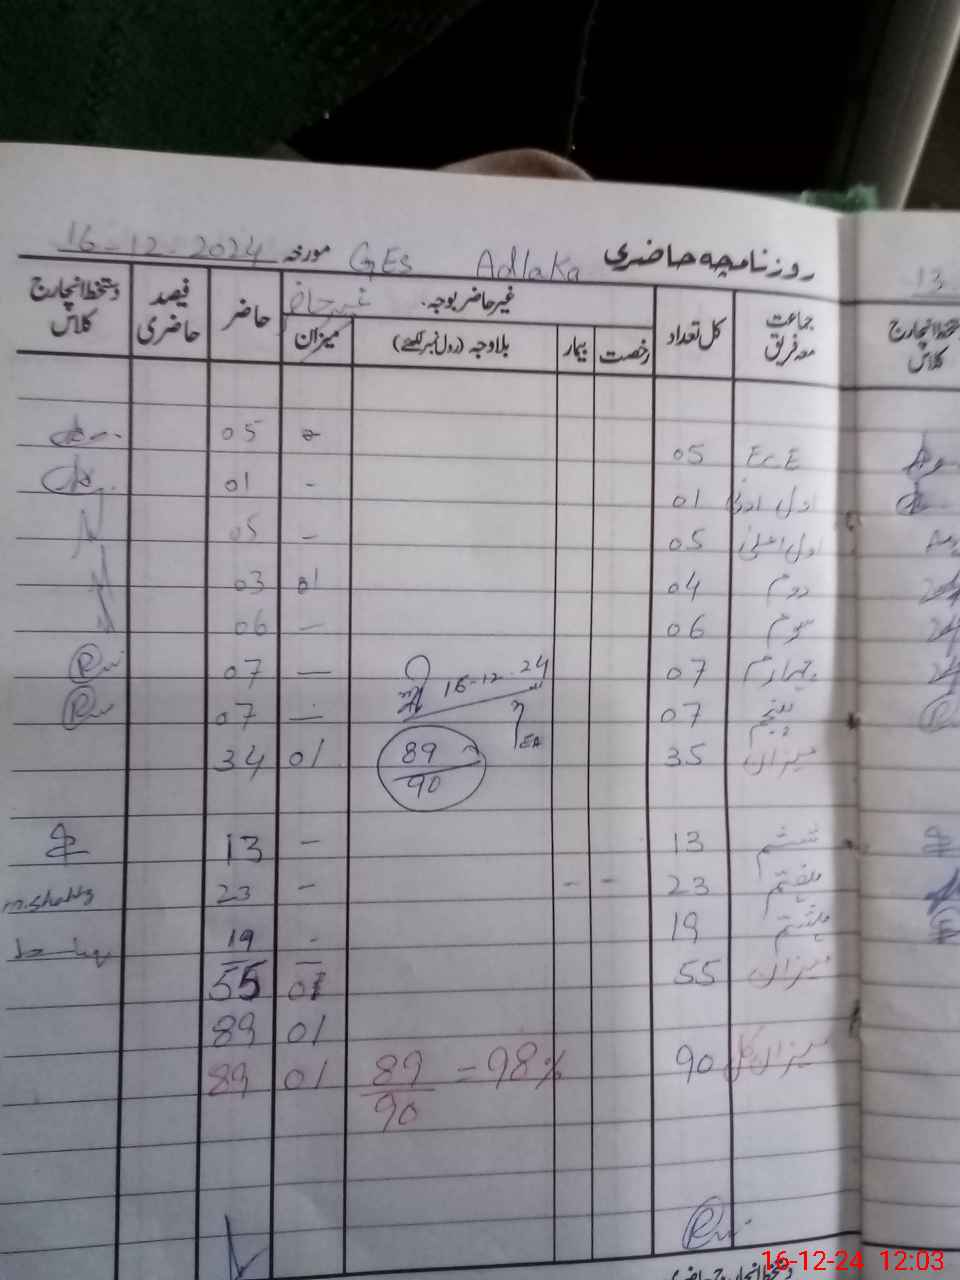 روزنامچہ حاضری GES Adlaka مورخہ 16-12-2024
جماعت معہ فریق کل تعداد غیر حاضر بوجہ۔ غیر حاضر حاضر فیصد حاضری دستخط انچارج کلاس
رخصت بیمار بلاوجہ (رول نمبر لکھیے) میزان
ECE 05 - 05
اول ادنیٰ 01 - 01
اول اعلیٰ 05 - 05
دوم 04 01 03
سوم 06 - 06
چہارم 07 — 07
16-12-24
پنجم 07 — 07
میزان 35 89/90 01 34
ششم 13 - 13
ہفتم 23 - - - 23
ہشتم 19 - 19
میزان 55 01 55
01 89
میزان کل 90 89/90 = 98% 01 89
13
دستخط انچارج کلاس
16-12-24 12:03